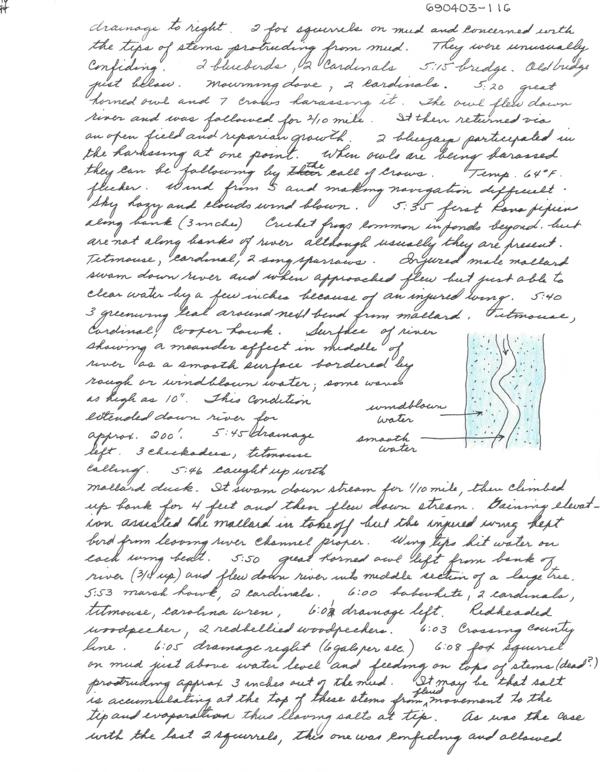 690403-116
drainage to right. 2 fox squirrels on mud and concerned with
the tips of stems protruding from mud. They were unusually
confiding. 2 bluebirds, 2 cardinals 5:15 bridge. Old bridge
just below. Mourning dove, 2 cardinals. 5:20 great
horned owl and 7 crows harassing it. The owl flew down
river and was followed for 2/10 mile. It then returned via
an open field and reparian growth. 2 bluejays participated in
the harassing at one point. When owls are being harassed
they can be following by the call of crows. Temp. 64°F.
flicker. Wind from S and making navigation difficult.
Sky hazy and clouds wind blown. 5:35 first Rana pipiens
along bank (3 inches) Cricket frogs common in ponds beyond but
are not along banks of river although usually they are present.
Titmouse, cardinal, 2 song sparrows. Injured male mallard
swam down river and when approached flew but just able to
clear water by a few inches because of an injured wing. 5:40
3 greenwing teal around next bend from mallard. Titmouse,
cardinal, Cooper hawk. Surface of river
showing a meander effect in middle of
river as a smooth surface bordered by
rough or windblown water; some waves
as high as 10". This condition
extended down river for
approx. 200'. 5:45 drainage
left. 3 chickadees, titmouse
calling. 5:46 caught up with
windblown
water
smooth
water
mallard duck. It swam down stream for 1/10 mile, then climbed
up bank for 4 feet and then flew down stream. Gaining elevat-
ion assisted the mallard in takeoff but the injured wing kept
bird from leaving river channel proper. Wing tips hit water on
each wing beat. 5:50 great horned owl left from bank of
river (3/4 up) and flew down river into middle section of a large tree.
5:53 marsh hawk, 2 cardinals. 6:00 bobwhite, 2 cardinals,
titmouse, carolina wren, drainage left. Redheaded
woodpecker, 2 redbellied woodpeckers. 6:03 Crossing county
line. 6:05 drainage right (6 gal per sec.) 6:08 fox squirrel
on mud just above water level and feeding on tops of stems (dead?)
protruding approx 3 inches out of the mud. It may be that salt
is accumulating at the top of these stems from fluid movement to the
tip and evaporation thus leaving salts at tip. As was the case
with the last 2 squirrels, this one was confiding and allowed